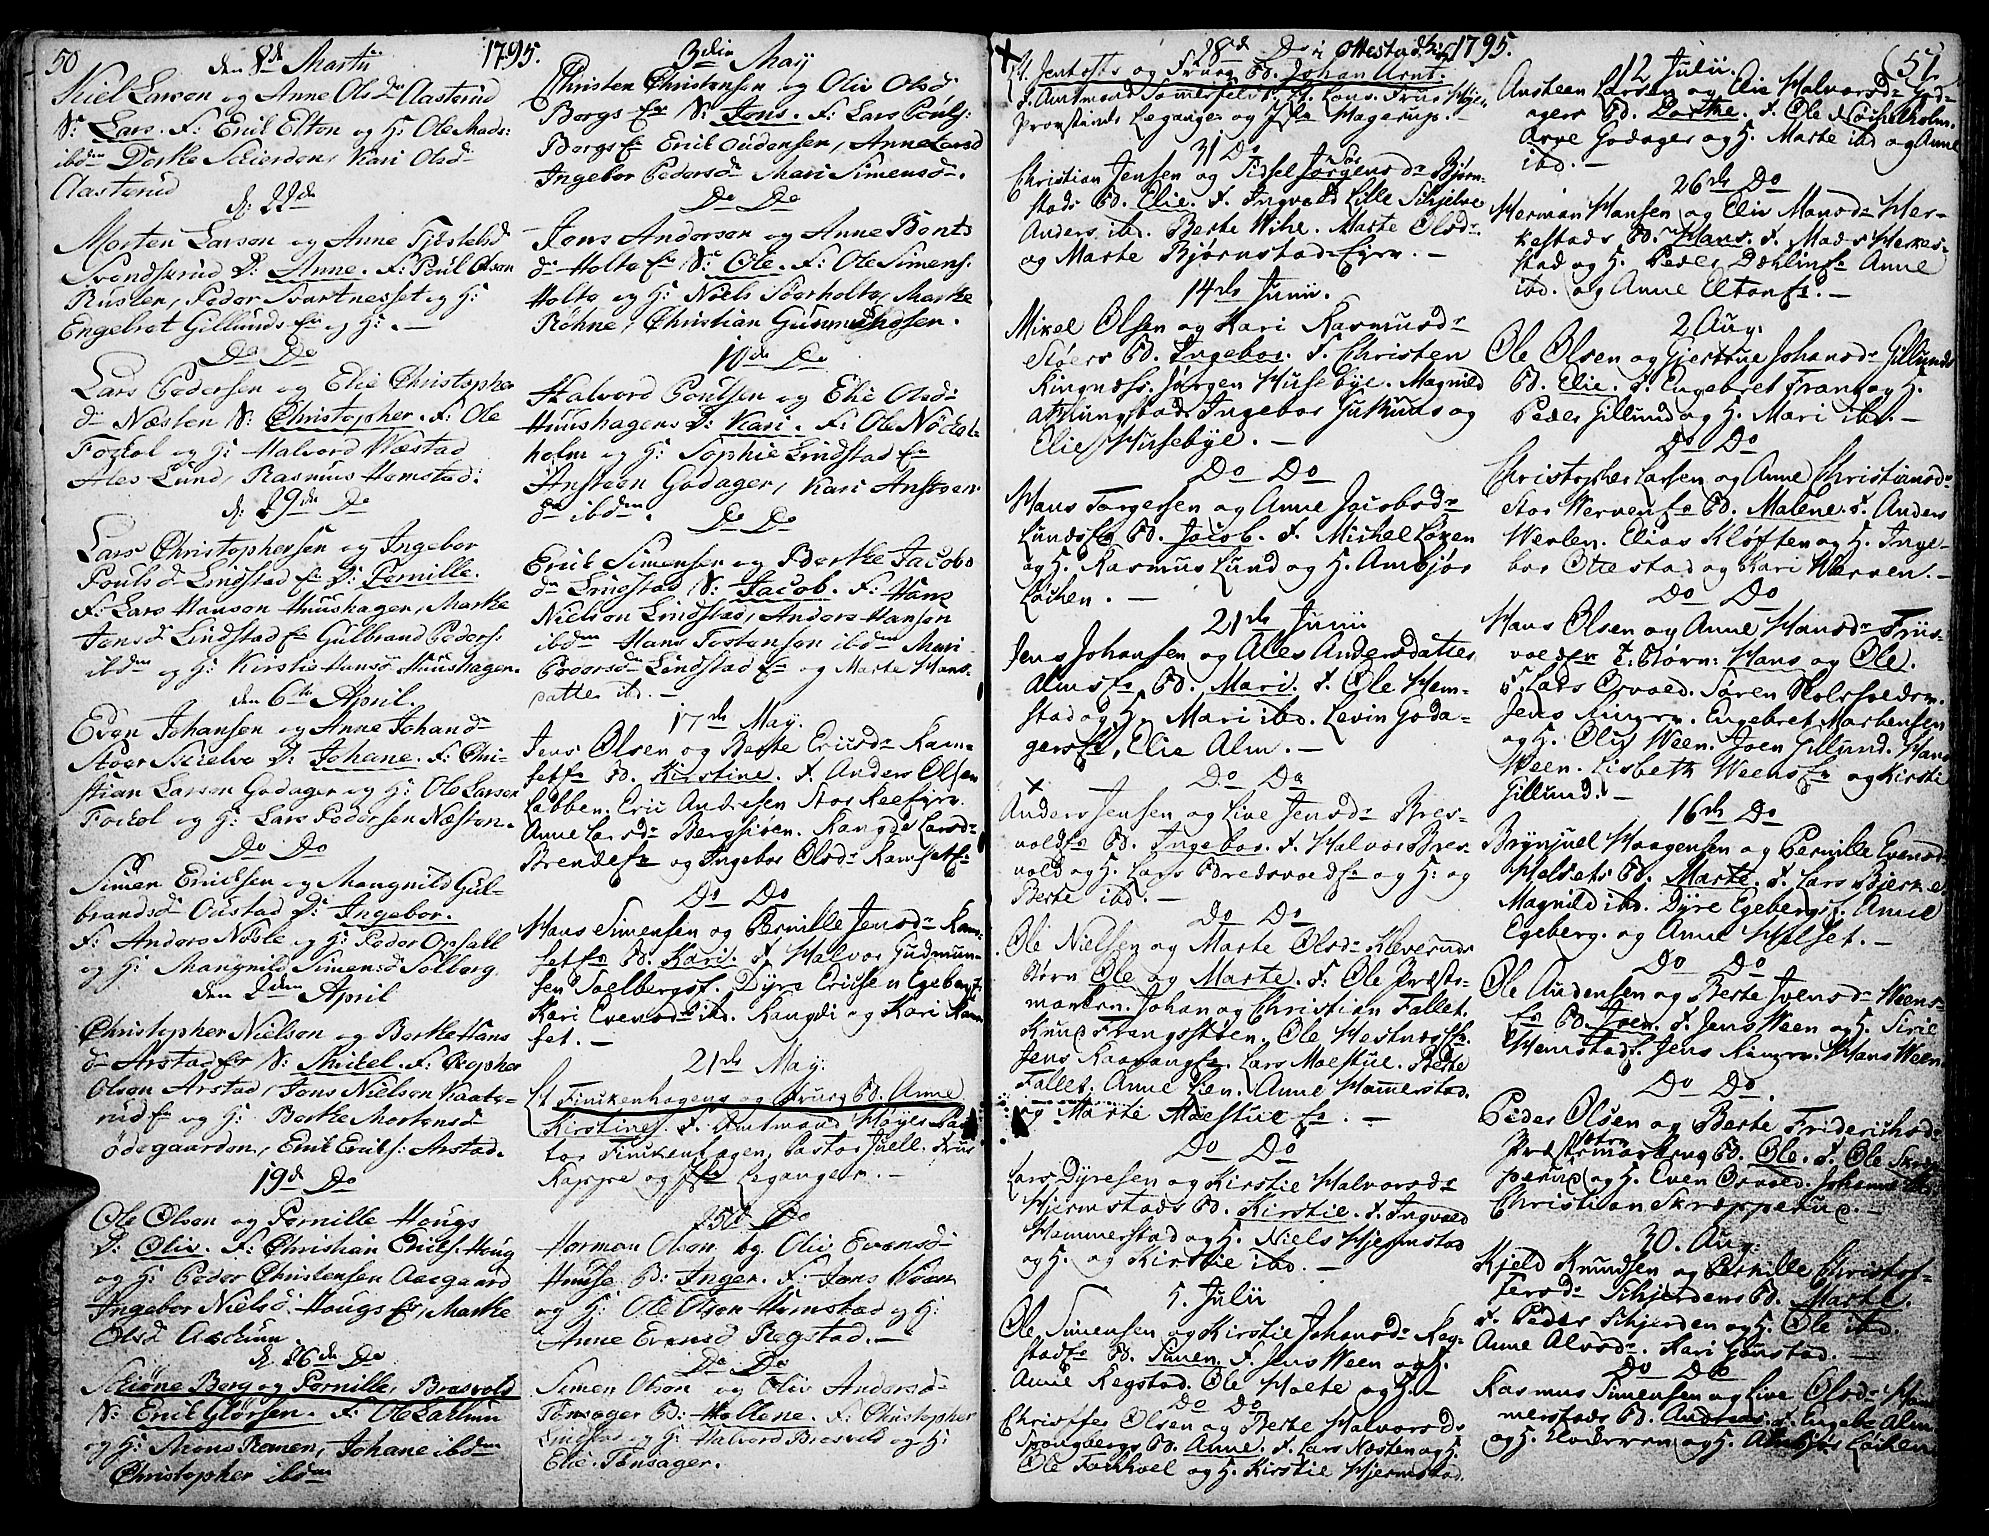 50
den 8de Martii 1795.
Niel Larsen og Anne Olsdr Aasterud
S: Lars. F: Erik Elton og H: Ole Mads:
ibdm Dorke Skierden, Kari Olsd
Aasterud
d. 22de
Morten Larsen og Anne
Svendsrud D: Anne. F: Poul Olsen
Rusten, Peder Svartnesset og H:
Engebret Gillunds og H:.
Do Do
Lars Pedersen og Elie Christopher
dr Næsten S: Christopher. F: Ole
Fockol og H: Halvord Wæstad
Ales Lund, Rasmus Hemstad:
d: 29de Do
Lars Christophersen og Ingebor
Pouls dr Lindstad D: Pernille.
F: Lars Hanson Huushager, Marte
Jensdr Lindstad Gulbrand Peders:
ibdm og H: Kirstie Hansd Huushagen.
den 6te April.
Even Johansen og Anne Johand
Stoer Skielve D: Johane. F: Chri-
stian Larsen Godager og H: Ole Larsen
Fockol og H: Lars Pedersen Næsten.
Do Do
Simen Ericksen og Mangnild Gul-
brandsd Oustad D: Ingebor.
F: Anders Nøsle og H: Peder Opsall
og H: Mangnild Simensd Solberg.
den April
Christopher Nielsen og Berthe Hans
dr Arstad S: Mikel. F:
Olsen Arstad, Jens Nielsen Kaats-
rud og H: Berthe Mortensd
ødegaarden, Erik Ericks: Arstad.
19de Do
Ole Olsen og Pernille Hougs
D: Oliv. F: Christian Ericks: Houg
og H: Peder Christensen Aasgaard
Ingebor Nielsd Hougs, Marthe
Olsd
d. 26de Do
Berg og Pernille Bresvold
S: Erik Glørsen. F: Ole
og H: Mons Ramen, Johane ibdm
Christopher ibdm
3die May
Christen Christensen og Oliv Olsd
Bergs S: Jens. F: Lars Pouls:
Bergs Erik Oudensen, Anne Larsd
Ingebor Pedersd Mari Simensd.
Do Do
Jens Andersen og Anne Bents
dr Holte S: Ole. F: Ole Simens:
Holte og H: Niels Søerholte, Marthe
Røhne, Christian Gusmedsen.
10de Do
Halvord Poulsen og Elie Olsd
Huushagens D: Kari. F: Ole Nøckel-
holm og H: Sophie Lindstad
Ansteen Godager, Kari Ansteen
dr ibdm. Do Do
Erik Simensen og Berthe Jacobs
dr Lindstad S: Jacob. F: Hans
Nielsen Lindstad, Anders Hansen
ibdm Hans Tostensen ibdm Mari
Pedersdr Lindstad og Marte Hans
datter ibd.
17de May.
Jens Olsen og Berte Ericsdr Ram-
set B. Kirstine. F. Anders Olsen
Labben. Eric Andresen Stor Ree
Anne Larsdr Bergsiøen. Rangde Larsdr
Brende og Ingebor Olsdr Ramset
Do Do
Hans Simensen og Pernille Jensdr Ram-
set B. Kari. F. Halvor Gudmun-
sen Soelberg. Dyre Ericksen Egeberg
Kari Evensdr ibd. Rangdi og Kari Ram
set.
21de May.
Lt Finckenhagens og Frues B. Anne
Kirstine. F. Amtmand Høyer Pas-
tor Finckenhagen, Pastor Juell. Frue
Kappe og Jfr Leganger.
25de Do
Herman Olsen og Oliv Evensd
Huuse B: Inger. F: Jens Veen
og H: Ole Olsen Hemstad og H:
Anne Evensd Regstad.
Do Do
Simen Olsen og Oliv Andersd
Tønsager B: Hellene. F: Christopher
Lindstad og H: Halvord Bresvold og H:
Elie Tønsager.
28de Do i Ottestad 1795. 51
Lt. Jentofts og Frues B. Johan Arnt.
F. Amtmand Sommerfeldt Lt. Lans. Frue Høyer
Provstinde Leganger og Jfr Hagerup.
31 Do
Christian Jensen og Sidsel Jørgensdr Bjørn-
stad B. Elie. F. Ingvald Lille Schjelve
Anders ibd. Berte Wihe. Marte Olsdr
og Marte Bjørnstad.
14de Junii.
Mikel Olsen og Kari Rasmusdr
Støers B. Ingebor. F. Christen
Ringnæss. Jørgen Husebye. Magnild
Atslungstad. Ingebor og
Elie Husebye.
Do Do
Hans Torgersen og Anne Jacobsdr
Lunds B. Jacob. F. Michel Løken
og H. Rasmus Lund og H. Ambjør
Løchen.
21de Junii
Jens Johansen og Ales Andersdatter
Alms B. Mari. F. Ole Hem-
stad og H. Mari ibd. Levin Goda-
gers, Elie Alm.
Do Do
Anders Jensen og Live Jensdr Bres-
vold B. Ingebor. F. Halvor Bres
vold og H. Lars Bredsvold og H: og
Berte ibd.
Do Do
Ole Nielsen og Marte Olsdr Kleveruds
Børn Ole og Marte. F: Ole Præst-
marken. Johan og Christian Fallet.
Knud Frangsstøen. Ole Hestnes
Jens Kaavang Lars Moestue. Berte
Fallet. Anne Lien. Anne Hamerstad.
og Marte Moestue
Do Do
Lars Dyresen og Kirstie Halvorsdr
Hjermstads B. Kirstie. F. Ingvold
Hammerstad og H. Niels Hjermstad
og H. og Kirstie ibd.
5. Julii
Ole Simensen og Kirstie Johansdr Reg-
stad B. Simen. F. Jens Ween og H.
Anne Regstad. Ole Holte og H.
Do Do
Christopher Olsen og Berte Halvorsdr
Spangbergs B. Anne. F. Lars Næsten og H.
Ole Fockhoel og H. Kirstie Hjermstad.
12 Julii.
Ansteen Larsen og Elie Halvorsdr God-
agers B. Dorthe. F. Ole Nøchelholm.
Arve Godager og H. Marte ibd og Anne
ibd.
26de Do
Herman Hansen og Eliv Hansdr Her-
kestads B. Hans. F. Mads Herkes-
stad og H. Peder Døhlin Anne
ibd. og Anne Elton.
2 Aug.
Ole Olsen og Gjertrue Johansdr Gillunds
B. Elie. F. Engebret Frang og H.
Peder Gillund og H. Mari ibd.
Do Do
Christopher Larsen og Anne Christiansdr
Stor Werven B. Malene. F. Anders
Werlen. Elias Kløften og H. Inge-
bor Ottestad og Kari Werven.
Do Do
Hans Olsen og Anne Hansdr Friis-
vold T. Børn: Hans og Ole.
F. Lars Osvold. Søren
Jens Engebret Mortensen
og H. Oliv Ween. Joen Gillund. Hans
Ween. Lisbeth Weens og Kirstie
Gillund.
16de Do
Brynjuel Haagensen og Pernille Evensdr
Helsets B. Marte. F. Lars Bjerke
Magnild ibd. Dyre Egebergs. Anne
Egeberg. og Anne Helset.
Do Do
Ole Audensen og Berte Ivensdr Weens-
B. Iven. F. Jens Ween og H. Sirie
Hemstad. Jens Hans Ween.
Do Do.
Peder Olsen og Berte Friderichsdr
Præstmarkens B. Ole. F. Ole
og H. Even Osvold. Johanne
Christian Skræpperud.
30. Aug.
Kjeld Knudsen og Pernille Christof-
fersdr Schjerdens B. Marte.
F. Peder Schjerden og H. Ole ibd.
Anne Alvsdr. Kari Gonstad.
Do Do
Rasmus Simensen og Live Olsdr Ham
merstads B. Andreas. F. Engebr. Alm
og H. og H. Ambjør Løchen